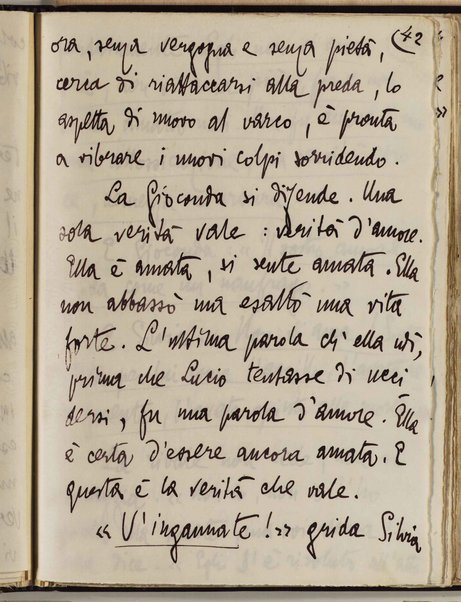 42
ora, senza vergogna e senza pietà,
cerca di riattaccarsi alla preda, lo
aspetta di nuovo al varco, è pronta
a vibrare i nuovi colpi sorridendo.
La Gioconda si difende. Una
sola verità vale : verità d'amore.
Ella è amata, si sente amata. Ella
non abbassò ma esaltò una vita
forte. L'ultima parola ch'ella udì,
prima che Lucio tentasse di ucci
dersi, fu una parola d'amore. Ella
è certa d'essere ancora amata. E
questa è la verità che vale.
« V'ingannate !» grida Silvia